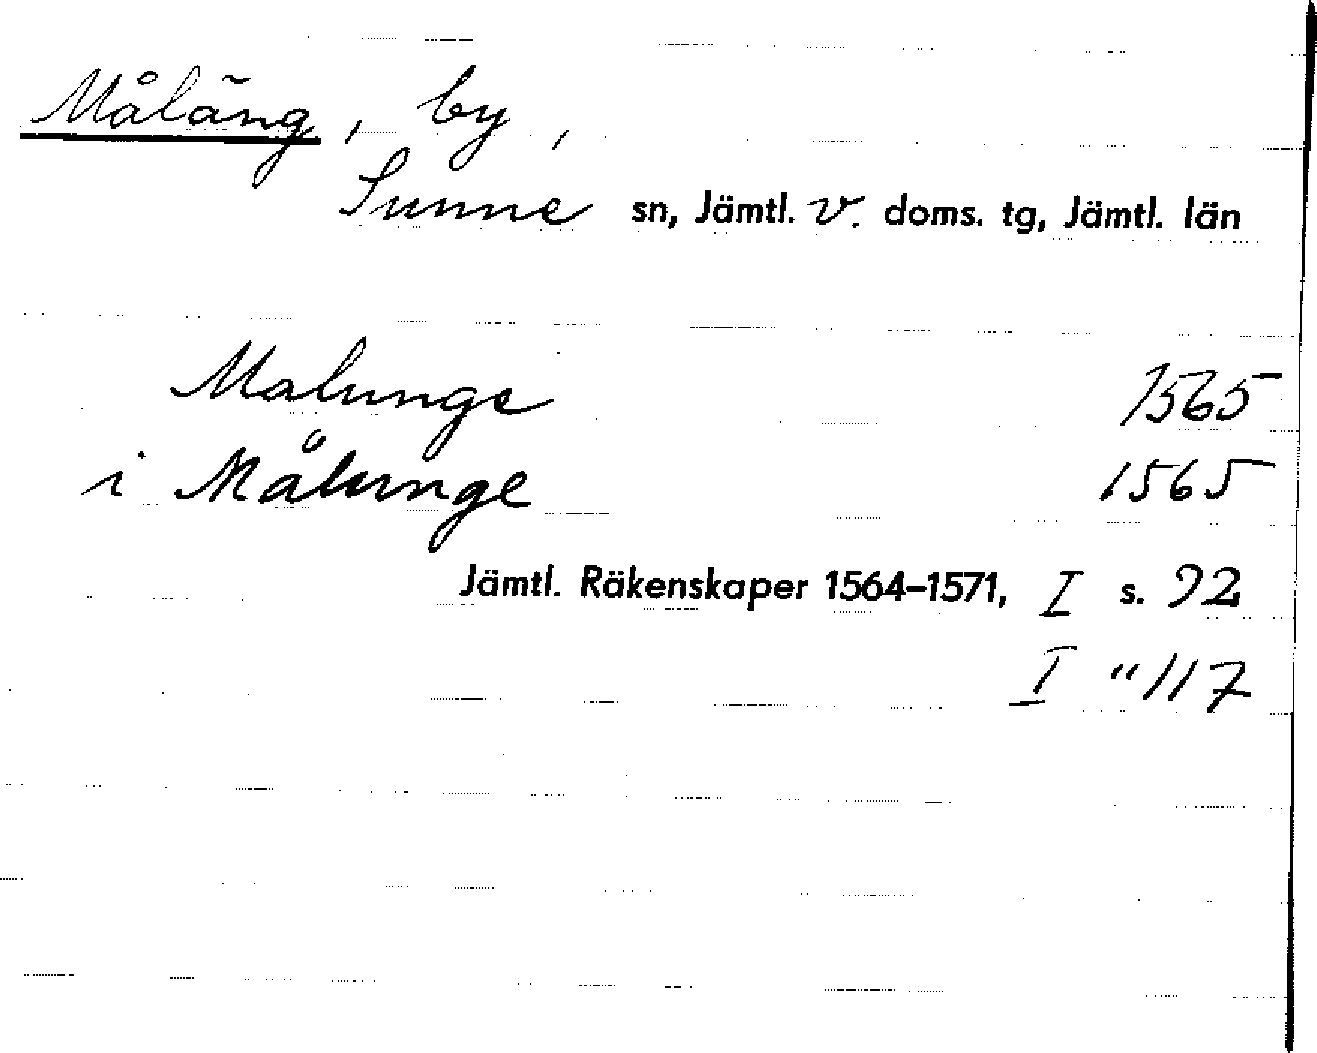 Måläng, by,
Sunne sn, Jämtl. v. doms. tg, Jämtl. län
Malunge 1565
i Målunge 1565
Jämtl. Räkenskaper 1564–1571, I s. 92
I " 117